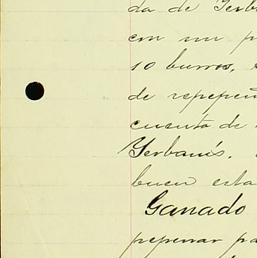 da de Yerb
con un p
10 burros,
de repepen
cuenta de
Yerbanís.
buen esta
Ganado
pepenar pa